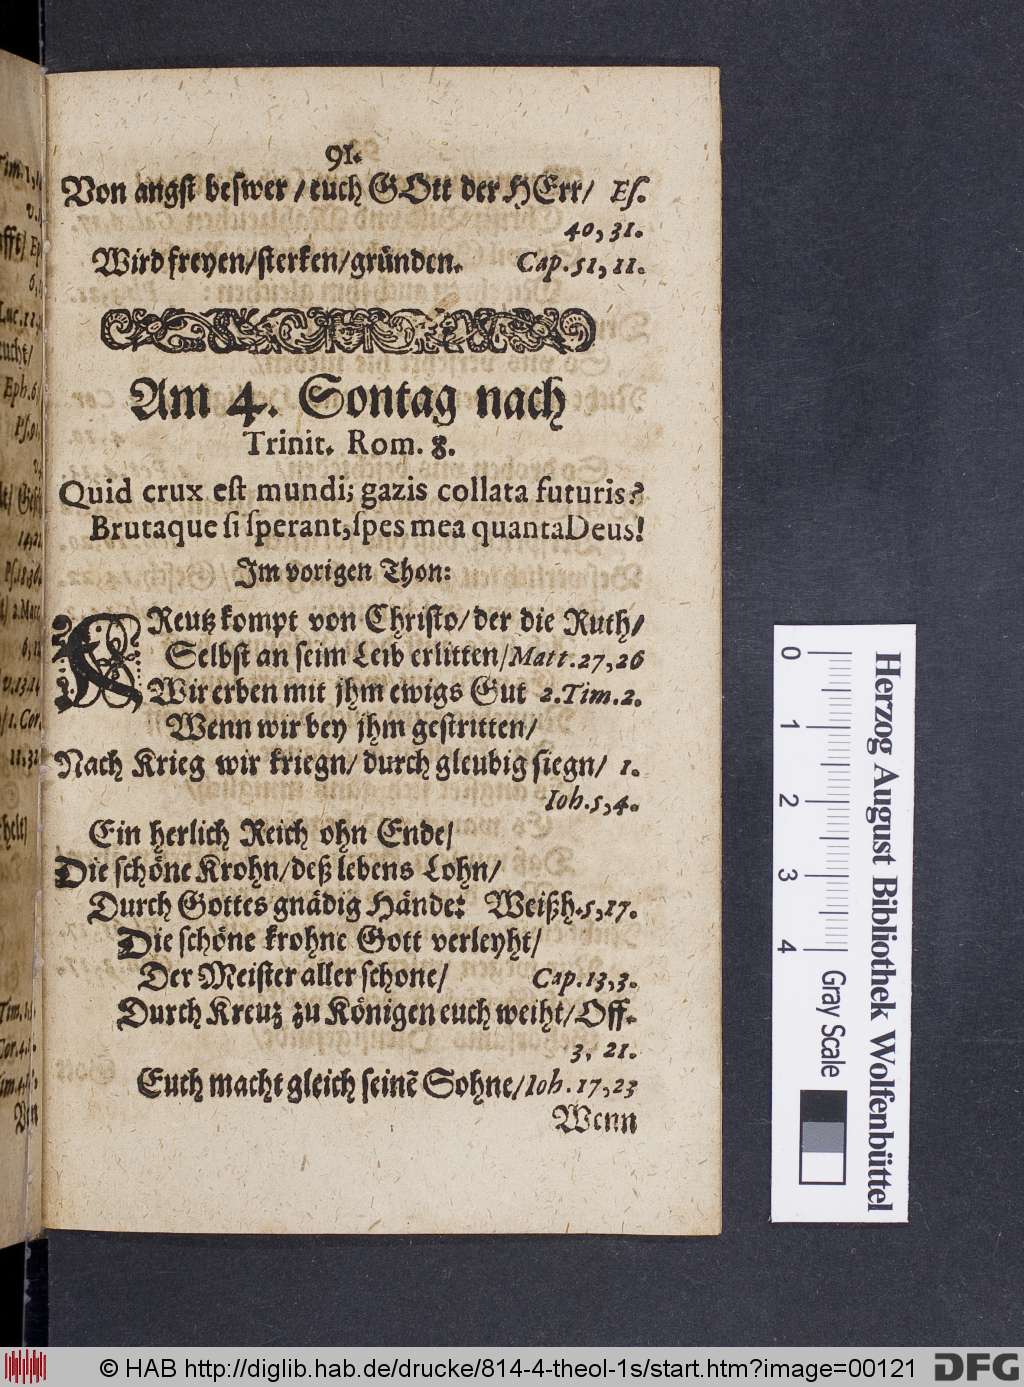 91.
Von angst beswer / euch GOtt der HErr/ Es.
40, 31.
Wird freyen/sterken/gründen. Cap. 51, 11.
Am 4. Sontag nach
Trinit. Rom. 8.
Quid crux est mundi; gazis collata futuris?
Brutaque si sperant, spes mea quanta Deus!
Im vorigen Thon:
CReutz kompt von Christo/ der die Ruth/
Selbst an seim Leib erlitten/ Matt. 27, 26
Wir erben mit jhm ewigs Gut 2. Tim. 2.
Wenn wir bey jhm gestritten/
Nach Krieg wir kriegn/ durch gleubig siegn/ 1.
Ioh. 5, 4.
Ein herlich Reich ohn Ende/
Die schöne Krohn/ deß lebens Lohn/
Durch Gottes gnädig Hände: Weißh. 5, 17.
Die schöne krohne Gott verleyht/
Der Meister aller schone/ Cap. 13, 3.
Durch Kreuz zu Königen euch weiht/ Off.
3, 21.
Euch macht gleich seinē Sohne/ Ioh. 17, 23
Wenn
Tim. 1,
v.
Ep
6,
Luc. 11,
Eph. 6
Ps.
v.
14, 22
Ps. 18, 36
2. Mac
6, 11
v. 13. 14
1. Cor.
11, 32
Tim.
Cor. 4.
Ven
0 1 2 3 4
Gray Scale
Herzog August Bibliothek Wolfenbüttel
© HAB http://diglib.hab.de/drucke/814-4-theol-1s/start.htm?image=00121
DFG